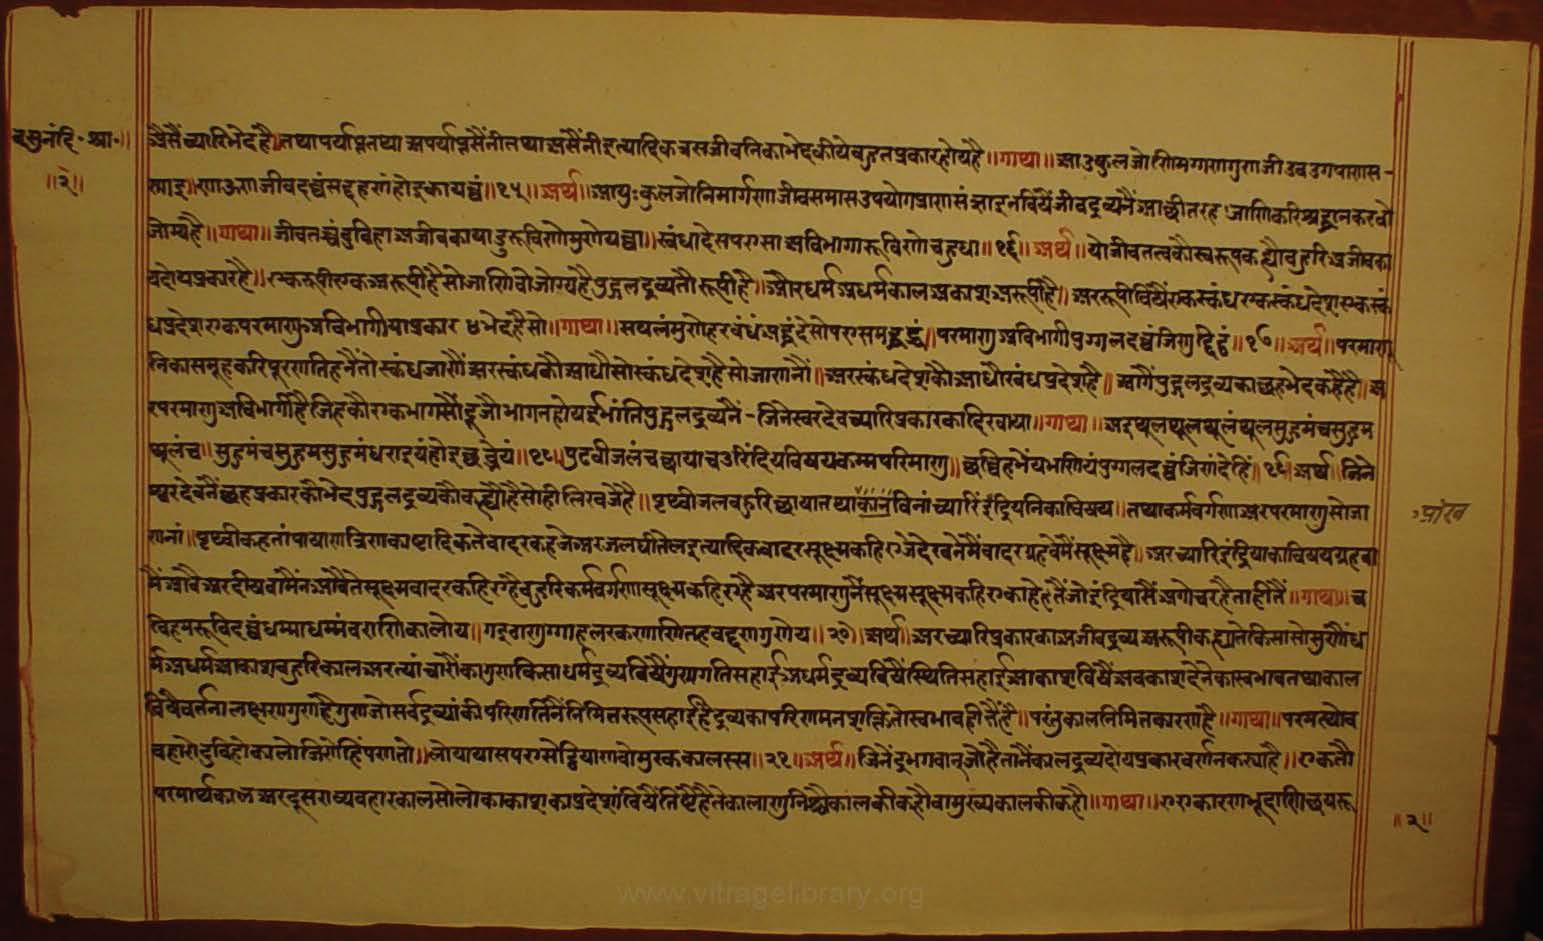 वसुनंदि॰श्रा॰॥
॥२॥
ऐसैं च्यारि भेद है तथा पर्याप्त तथा अपर्याप्त सैंनी तथा असैंनी इत्यादिक त्रस जीवनिका भेद कीये बहुत प्रकार होय है॥ गाथा॥ आउ कुल जोणि मग्गण गुण जीउवउग पाण स-
ण्णाइ॥ णाऊण जीवदव्वं सद्दहणं होइ कायव्वं॥१५॥ अर्थ॥ आयुः कुल जोनि मार्गणा जीवसमास उपयोग प्राण संज्ञा इनविषैं जीवद्रव्यनैं आछीतरह जाणिकरि श्रद्धान करवो
जोग्य है॥ गाथा॥ जीवतच्चं दुविहा अजीवकाया दु रूविणो मुणेयव्वा॥ खंधा देस पएसा अविभागा रूविणो चदुधा॥१६॥ अर्थ॥ यो जीवतत्वकौ स्वरूप कह्यौ बहुरि अजीवका
य दोय प्रकार है॥ एक रूपी एक अरूपी है सो जाणिवो जोग्य है पुद्गलद्रव्य तौ रूपी है॥ और धर्म अधर्म काल अकाश अरूपी है॥ अर रूपीविषैं एक स्कंध एक स्कंधदेश एक स्कं
धप्रदेश एक परमाणु अविभागी या प्रकार ४ भेद है सो॥ गाथा॥ सयलं मुणेहर वंधं अद्धं देसो पएसमद्धद्धं॥ परमाणु अविभागी पुग्गलदव्वं जिणुद्दिट्ठं॥१७॥ अर्थ॥ परमाणू
निका समूहकरि पूरण तिहनैं तो स्कंध जाणौं अर स्कंधकौ आधौ सो स्कंधदेश है सो जाणनौं॥ अर स्कंधदेशकौ आधौ खंधप्रदेश है॥ आगैं पुद्गलद्रव्यका छह भेद कहै है॥ अ
र परमाणु अविभागी है जिहकौ एक भाग सौं दूजौ भाग न होय ई भांति पुद्गलद्रव्यनैं-जिनेस्वरदेव च्यारि प्रकारका दिखाया॥ गाथा॥ अइथूल थूल थूलं थूलसुहुमं च सुहुम
थूलं च॥ सुहुमं च सुहुम सुहुमं धराइयं होइ छब्भेयं॥१८॥ पुढवी जलं च छाया चउरिंदियविषय कम्म परिमाणु॥ छव्विह भेयं भणियं पुग्गलदव्वं जिणंदेहिं॥१९॥ अर्थ॥ जिने
श्वरदेवनैं छह प्रकारकौ भेद पुद्गलद्रव्यकौ कह्यौ है सो ही लिखजे है॥ पृथ्वी जल बहुरि छाया तथा कांन विनां च्यारि इंद्रियनिका विषय॥ तथा कर्मवर्गणा अर परमाणु सो जा
णनां॥ पृथ्वी कहतां पाषाण त्रिण काष्टादिक ते बादर कहजे अर जल घी तेल इत्यादिक बादर सूक्ष्म कहिए जे देखनेमैं बादर ग्रहवेमैं सूक्ष्म है॥ अर च्यारि इंद्रियाका विषय ग्रहवा
मैं आवै अर दीखवामैं न आवै ते सूक्ष्मबादर कहिए है बहुरि कर्मवर्गणा सूक्ष्म कहिए है अर परमाणुनैं सूक्ष्मसूक्ष्म कहिए काहेतैं जो इंद्रियासैं अगोचर है ताहीतैं॥ गाथा॥ च
व्विहमरूविदव्वं धम्माधम्मंवराणि कालो य॥ गइठाणुग्गाहलरकरणाणि तह वट्टणगुणो य॥२०॥ अर्थ॥ अर च्यारि प्रकारका अजीवद्रव्य अरूपी कह्या ते किसा सो सुणौं ध
र्म अधर्म आकाश बहुरि काल अर त्यां च्यारौंका गुण किसा धर्मद्रव्यविषैं गुण गतिसहाई अधर्मद्रव्यविषैं स्थितिसहाई आकाशविषैं अवकाश देनेका स्वभाव तथा काल
विषै वर्तना लक्षण गुण है गुण जो सर्व द्रव्यांकी परिणतिनैं निमित्तरूप सहाई है द्रव्यका परिणमन शक्ति तो स्वभाव ही तैं है॥ परंतु काल निमित्त कारण है॥ गाथा॥ परमत्थो व
वहारो दुविहो कालो जिणेहिं पण्णत्तो॥ लोयायासपएसेट्ठियाणवो मुरककालस्स॥२१॥ अर्थ॥ जिनेंद्र भगवान् जो है तानैं कालद्रव्य दोय प्रकार वर्णन कस्या है॥ एक तौ
परमार्थकाल अर दूसरा व्यवहारकाल सो लोकाकाशका प्रदेशांविषैं तिष्टै है ते कालाणु निश्चैकालकी कहौ वा मुख्यकालकी कहौ॥ गाथा॥
॥२॥